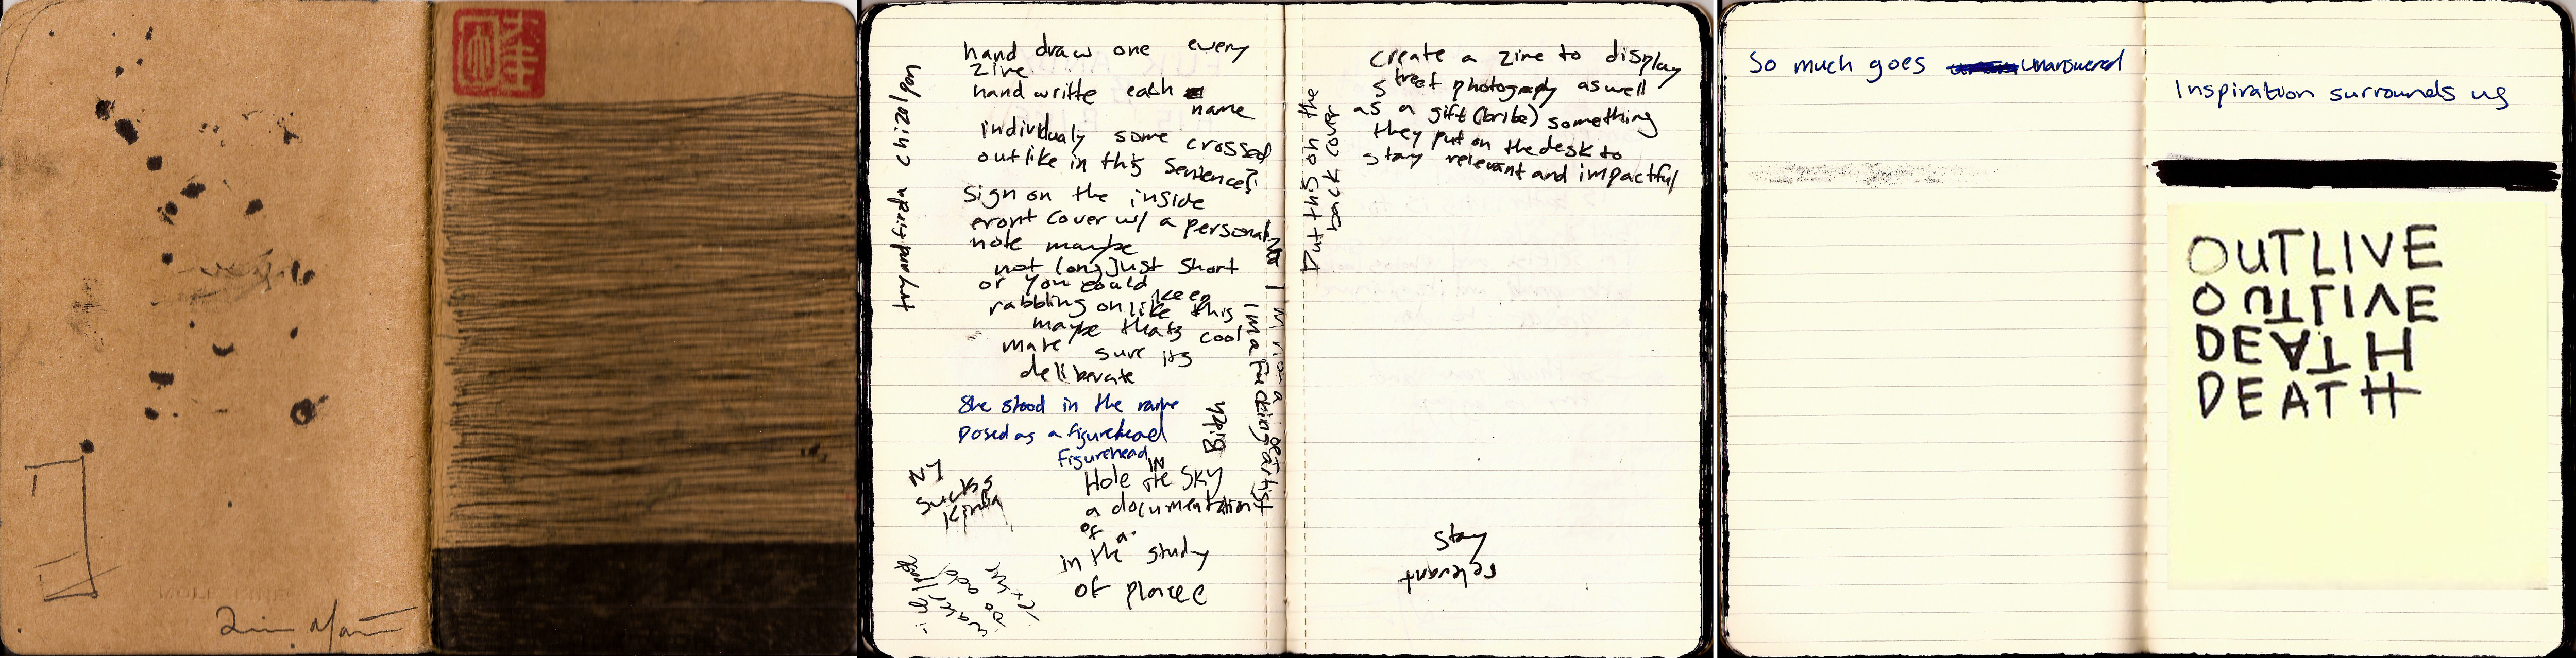 hand draw one every
zine
hand writte each
name
individualy some crossed
out like in this sentence?
Sign on the inside
front cover w/ a personal
note maybe
not long just short
or you could
keep
rabbling on like this
maybe thats cool
make sure its
deliberate
She stood in the
posed as a figurehead
Figurehead
IN
Hole the SKY
a documentation
of a
in the study
of placee
NY
sucks
kinda
Bitch
I'm a fucking artist
Put this on the
back cover
create a zine to display
street photography as well
as a gift (bribe) something
they put on the desk to
stay relevant and impactful
stay
relevant
So much goes unanswered
Inspiration surrounds us
OUTLIVE
OUTLIVE
DEATH
DEATH